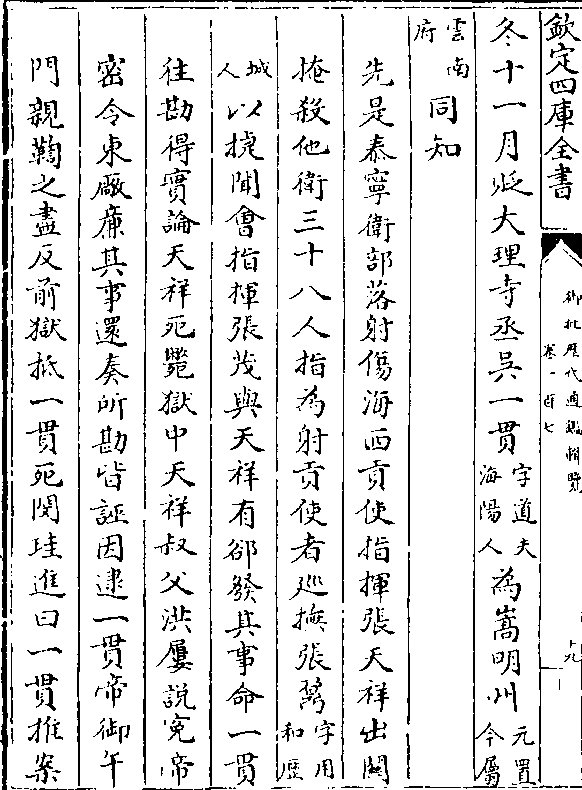 欽定四庫全書
御批歷代通鑑輯覽
卷一百七
十九
冬十一月貶大理寺丞吳一貫字道夫海陽人為嵩明州元置今屬
雲南府同知
先是泰寧衛部落射傷海西貢使指揮張天祥出關
掩殺他衛三十八人指為射貢使者巡撫張鼐字用和歷
城人以捷聞會指揮張茂與天祥有郤發其事命一貫
往勘得實論天祥死斃獄中天祥叔父洪屢說寃帝
密令東厰廉其事還奏所勘皆誣因逮一貫帝御午
門親鞫之盡反前獄抵一貫死閔珪進曰一貫推案